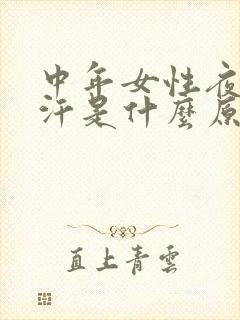 中年女性夜
汗是什麼原
直上青雲